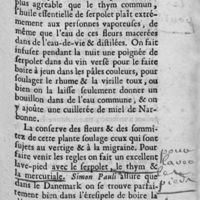 plus agréable que le thym commun,
l'huile essentielle de serpolet plaît extrê-
mement aux personnes vaporeuses, de
même que l'eau de ces fleurs macérées
dans de l'eau-de-vie & distilées. On fait
infuser pendant la nuit poignée de
serpolet dans du vin versé pour le faire
boire à jeun dans les pâles couleurs, pour
soulager le rhume & la vieille toux, ou
bien on la laisse seulement donner un
bouillon dans de l'eau commune, & on
y ajoute une cuillerée de miel de Nar-
bonne.
La conserve des fleurs & des sommi-
tés de cette plante soulage ceux qui sont
sujets au vertige & à la migraine. Pour
faire venir les regles on fait un excellent
lave-pied avec le serpolet, le thym &
la mercuriale. Simon Pauli assure que
dans le Danemark on se trouve parfai-
tement bien dans l'éresipele de boire la
pour
lave
pieds